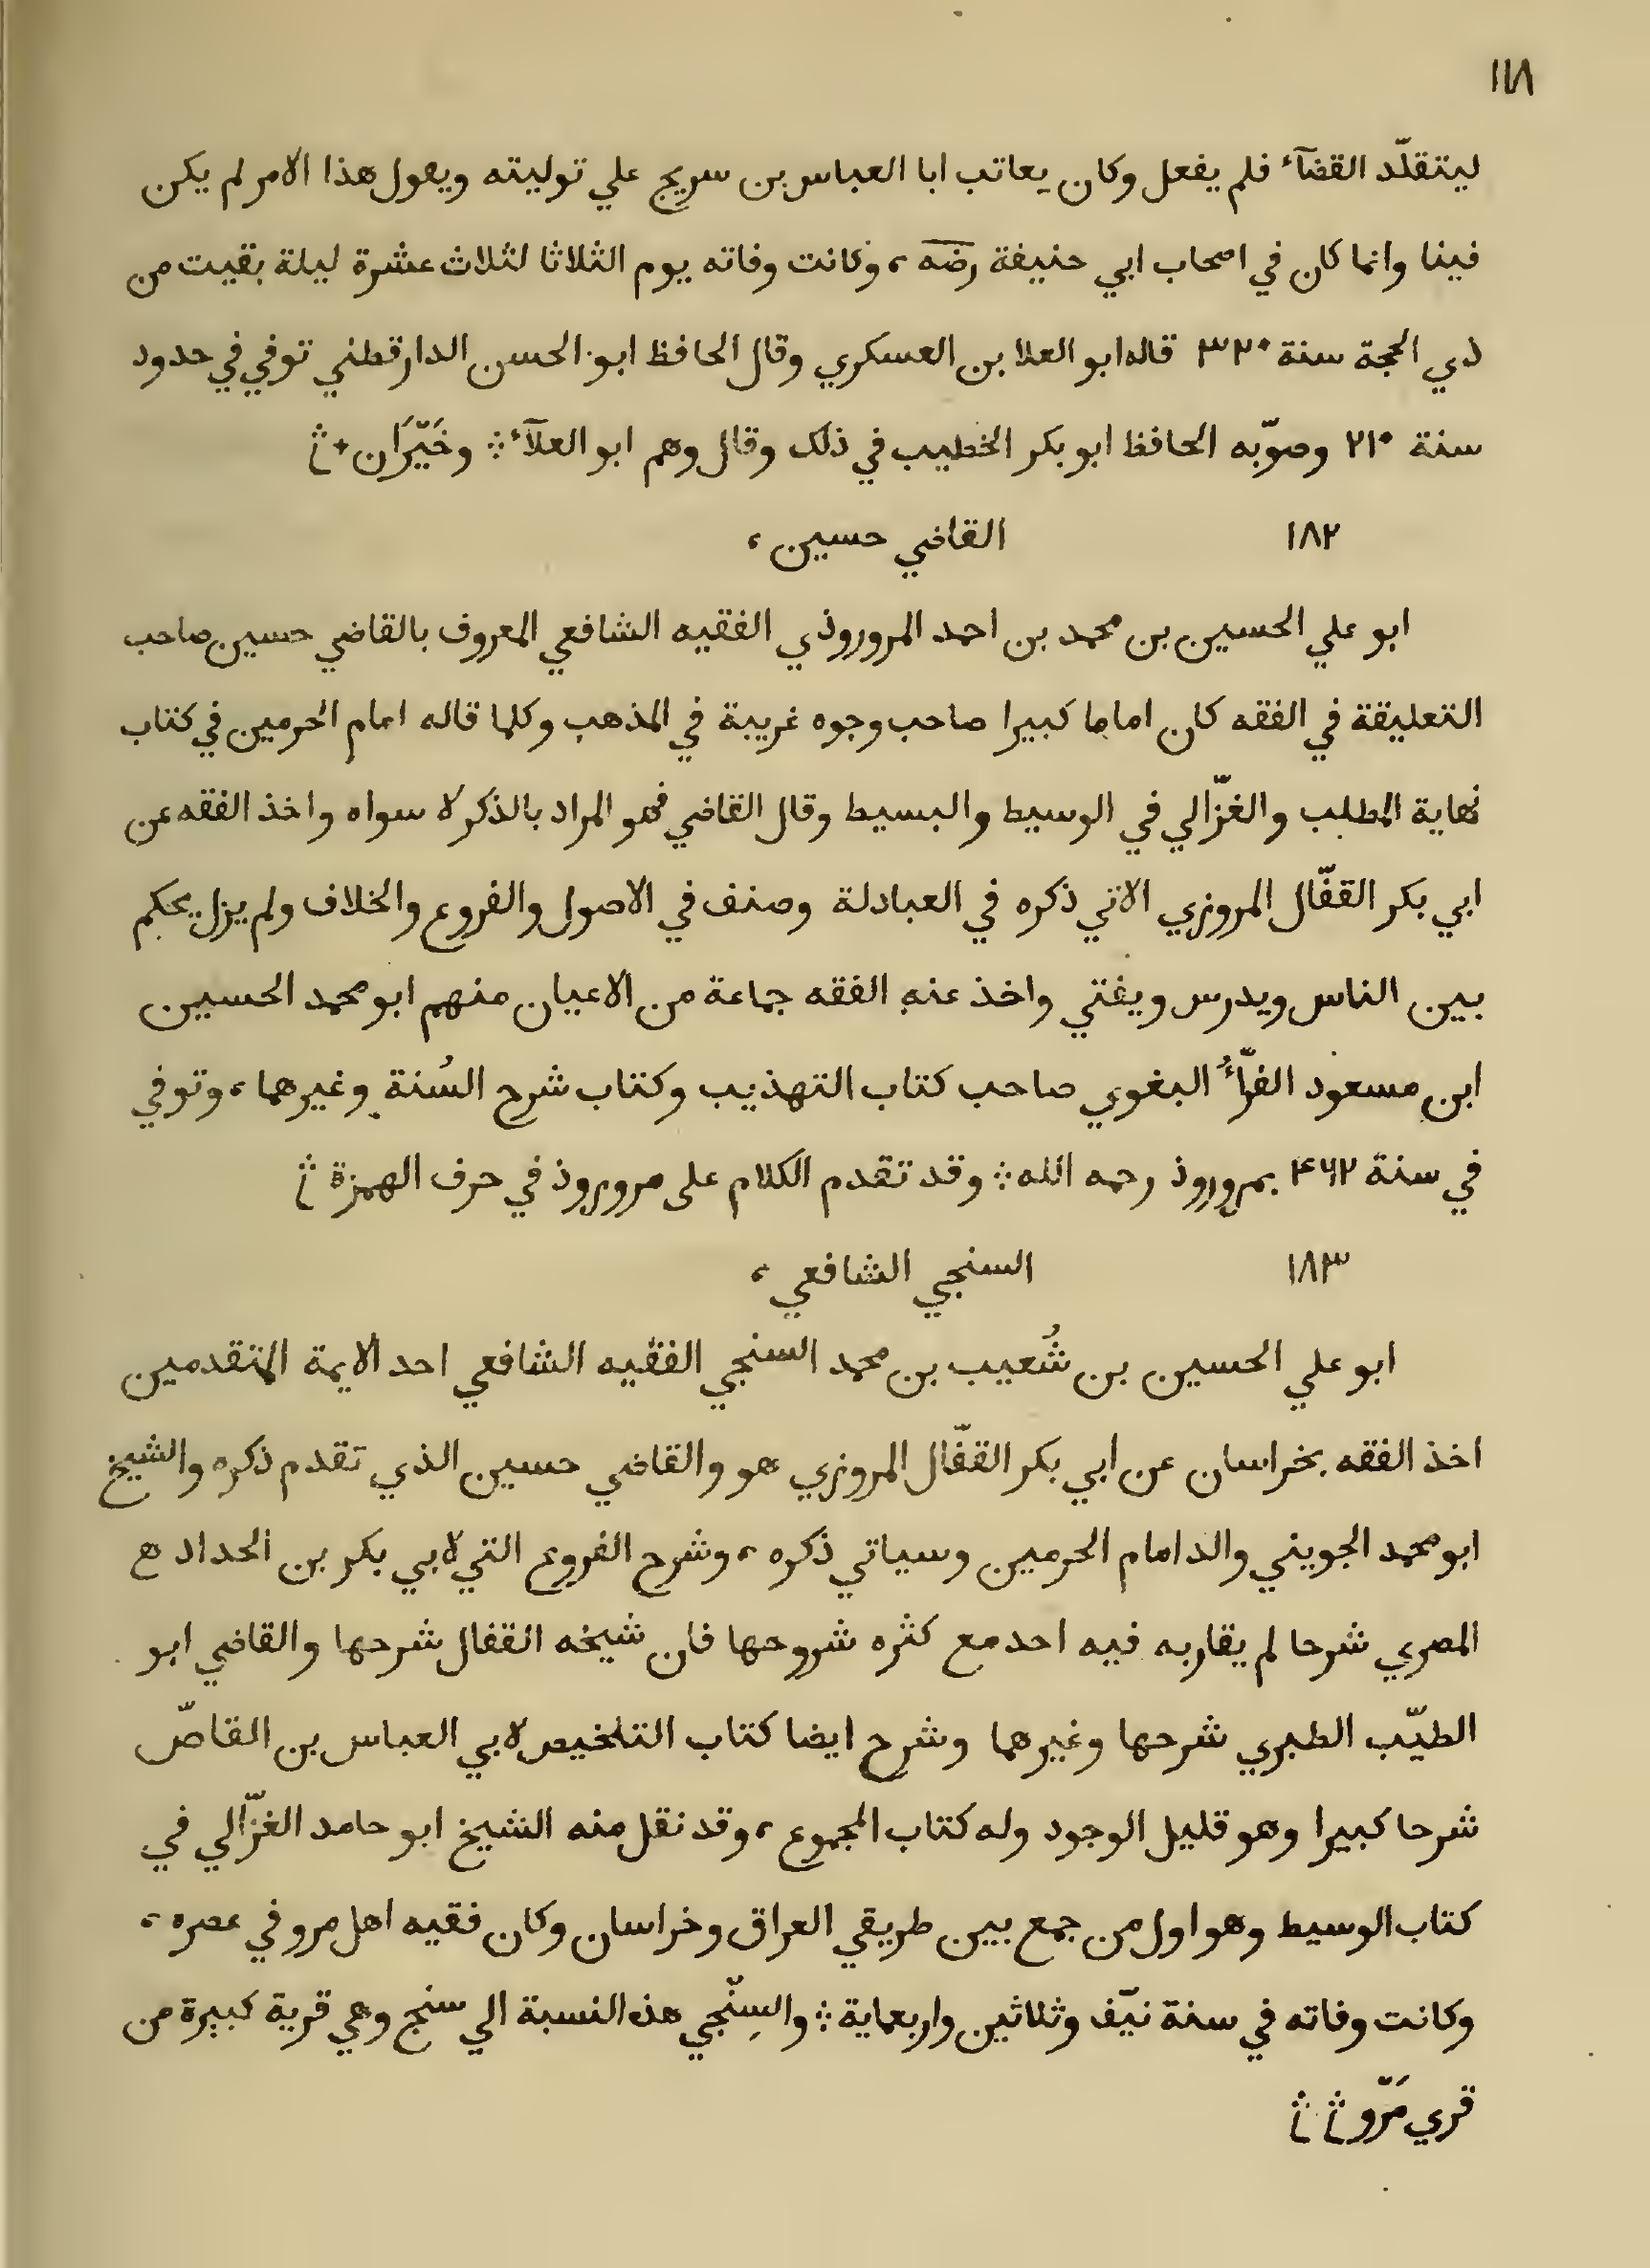 ١١٨
ليتقلّد القضآء فلم يفعل وكان يعاتب ابا العباس بن سريج علي توليته ويقول هذا الامر لم يكن
فينا وانما كان في اصحاب ابي حنيفة رضه ، وكانت وفاته يوم الثلاثا لثلاث عشرة ليلة بقيت من
ذي الحجة سنة ٣٢٠ قاله ابو العلا بن العسكري وقال الحافظ ابو الحسن الدارقطني توفي في حدود
سنة ٣١٠ وصوّبه الحافظ ابو بكر الخطيب في ذلك وقال وهم ابو العلآء ؞ وخَيّرَان
١٨٢ القاضي حسين ،
ابو علي الحسين بن محمد بن احمد المروروذي الفقيه الشافعي المعروف بالقاضي حسين صاحب
التعليقة في الفقه كان اماما كبيرا صاحب وجوه غريبة في المذهب وكلما قاله امام الحرمين في كتاب
نهاية المطلب والغزّالي في الوسيط والبسيط وقال القاضي فهو المراد بالذكر لا سواه واخذ الفقه عن
ابي بكر القفّال المروزي الاتي ذكره في العبادلة وصنف في الاصول والفروع والخلاف ولم يزل يحكم
بين الناس ويدرس ويفتي واخذ عنه الفقه جماعة من الاعيان منهم ابو محمد الحسين
ابن مسعود الفرّآءُ البغوي صاحب كتاب التهذيب وكتاب شرح السُنة وغيرهما ، وتوفي
في سنة ۴٦٢ بمروروذ رحمه الله ؞ وقد تقدم الكلام على مروروذ في حرف الهمزة
١٨٣ السنجي الشافعي ،
ابو علي الحسين بن شُعيب بن محمد السنجي الفقيه الشافعي احد الايمة المتقدمين
اخذ الفقه بخراسان عن ابي بكر القفّال المروزي هو والقاضي حسين الذي تقدم ذكره والشيخ
ابو محمد الجويني والد امام الحرمين وسياتي ذكره ، وشرح الفروع التي لابي بكر بن الحداد
المصري شرحا لم يقاربه فيه احد مع كثره شروحها فان شيخه القفال شرحها والقاضي ابو
الطيّب الطبري شرحها وغيرهما وشرح ايضا كتاب التلخيص لابي العباس بن القاصّ
شرحا كبيرا وهو قليل الوجود وله كتاب المجموع ، وقد نقل منه الشيخ ابو حامد الغزّالي في
كتاب الوسيط وهو اول من جمع بين طريقي العراق وخراسان وكان فقيه اهل مرو في عصره ،
وكانت وفاته في سنة نيّف وثلاثين واربعماية ؞ والسِنّجي هذه النسبة الي سنج وهي قرية كبيرة من
قري مَرّو